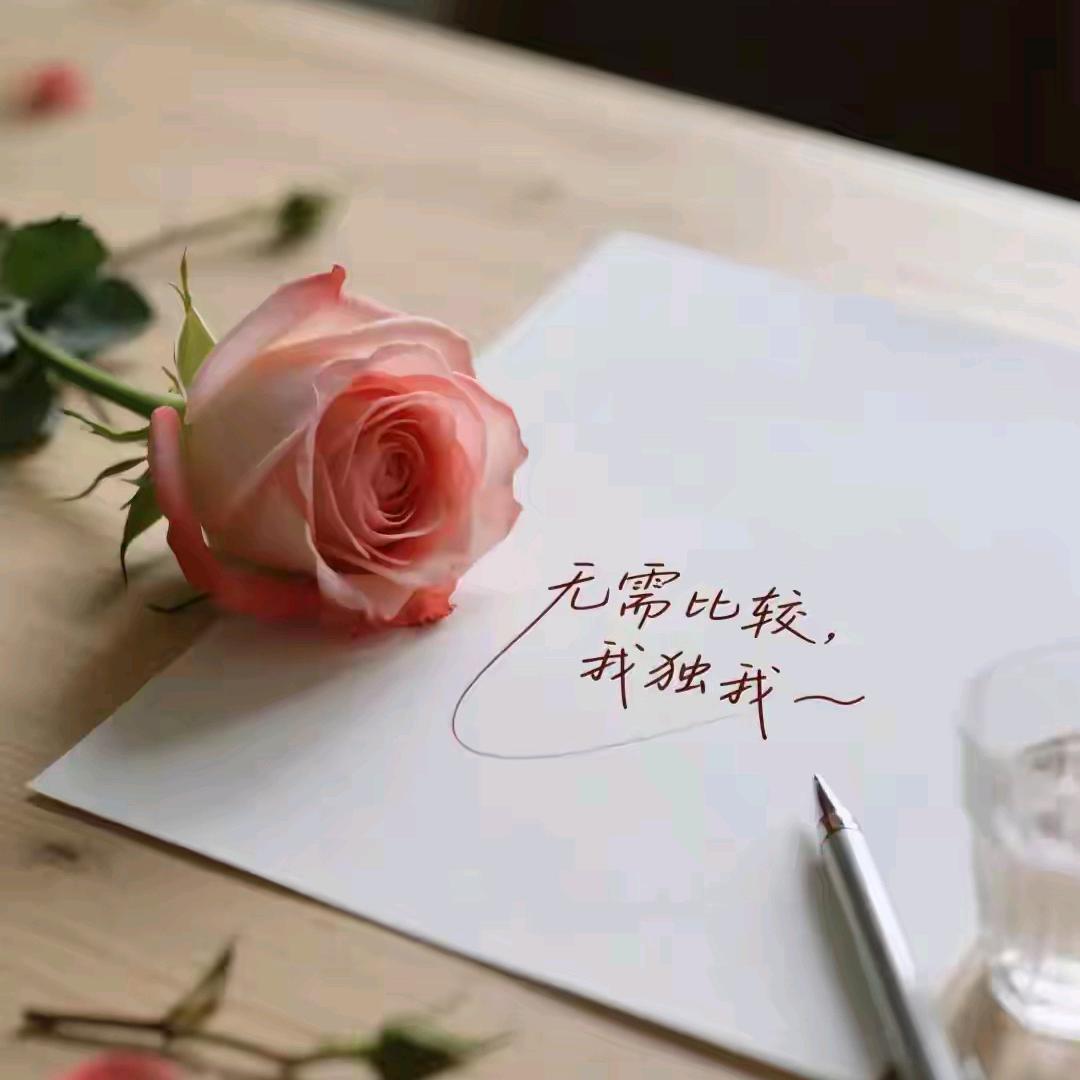 无需比较,
我独我~